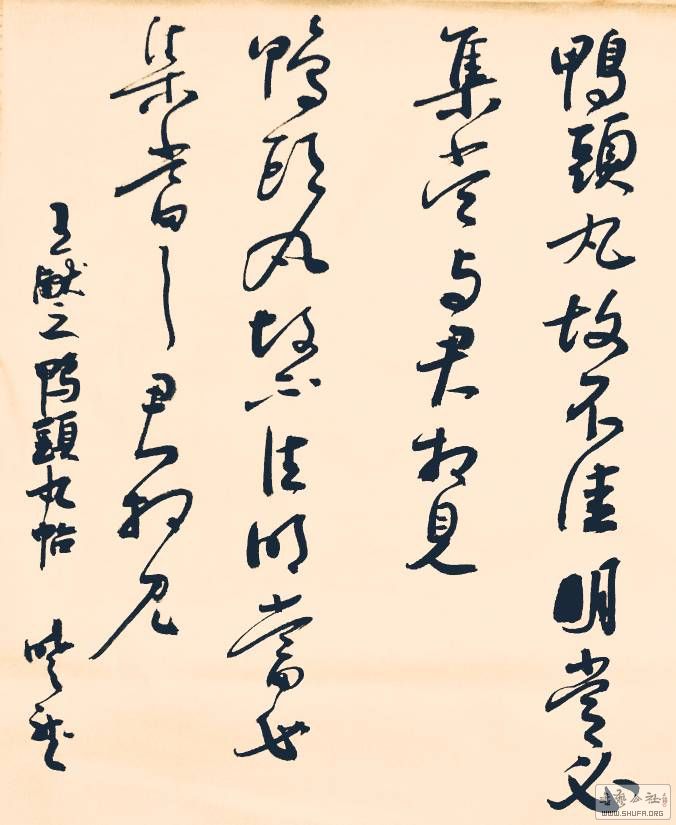 鴨頭丸故不佳明當必
集當与君相見
鴨頭丸故不佳明當必
集當与君相見
王献之鴨頭丸帖
書藝公社
WWW.SHUFA.ORG